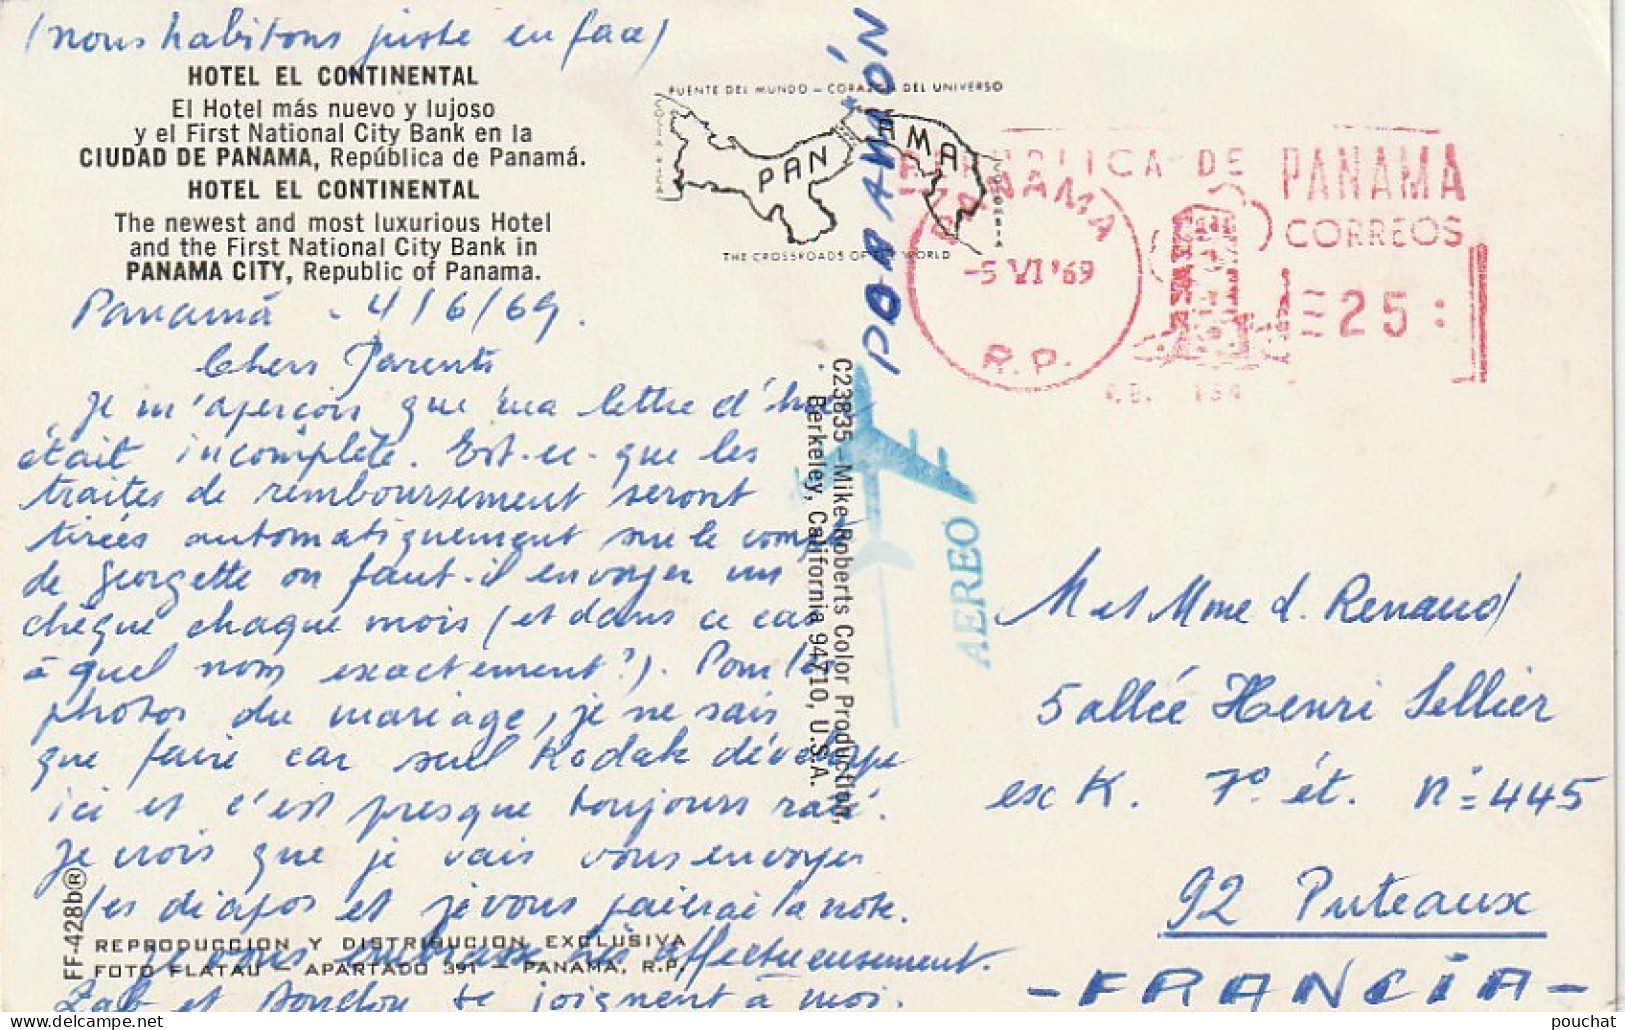 (nous habitons juste en face)
HOTEL EL CONTINENTAL
El Hotel más nuevo y lujoso
y el First National City Bank en la
CIUDAD DE PANAMA, República de Panamá.
HOTEL EL CONTINENTAL
The newest and most luxurious Hotel
and the First National City Bank in
PANAMA CITY, Republic of Panama.
Panamá - 4/6/69.
Chers Parents
Je m'aperçois que ma lettre d'hier
était incomplète. Est-ce-que les
traites de remboursement seront
tirées automatiquement sur le compte
de Georgette ou faut-il envoyer un
chèque chaque mois (et dans ce cas
à quel nom exactement?). Pour les
photos du mariage, je ne sais
que faire car seul Kodak développe
ici et c'est presque toujours raté.
Je crois que je vais vous envoyer
les diapos et je vous paierai la note.
Je vous embrasse très affectueusement.
et se joignent à moi.
FF-428b®
REPRODUCCION Y DISTRIBUCION EXCLUSIVA
FOTO FLATAU - APARTADO 391 - PANAMA, R.P.
C23835-Mike Roberts Color Production,
Berkeley, California 94710, U.S.A.
PUENTE DEL MUNDO - CORAZON DEL UNIVERSO
COSTA RICA
PANAMA
COLOMBIA
THE CROSSROADS OF THE WORLD
POR AVIÓN
AEREO
REPUBLICA DE PANAMA
CORREOS
PANAMA
-5 VI '69
R.P.
25
M et Mme d. Renaud
5 allée Henri Sellier
esc K. 7º ét. nº 445
92 Puteaux
- FRANCIA -
pouchat